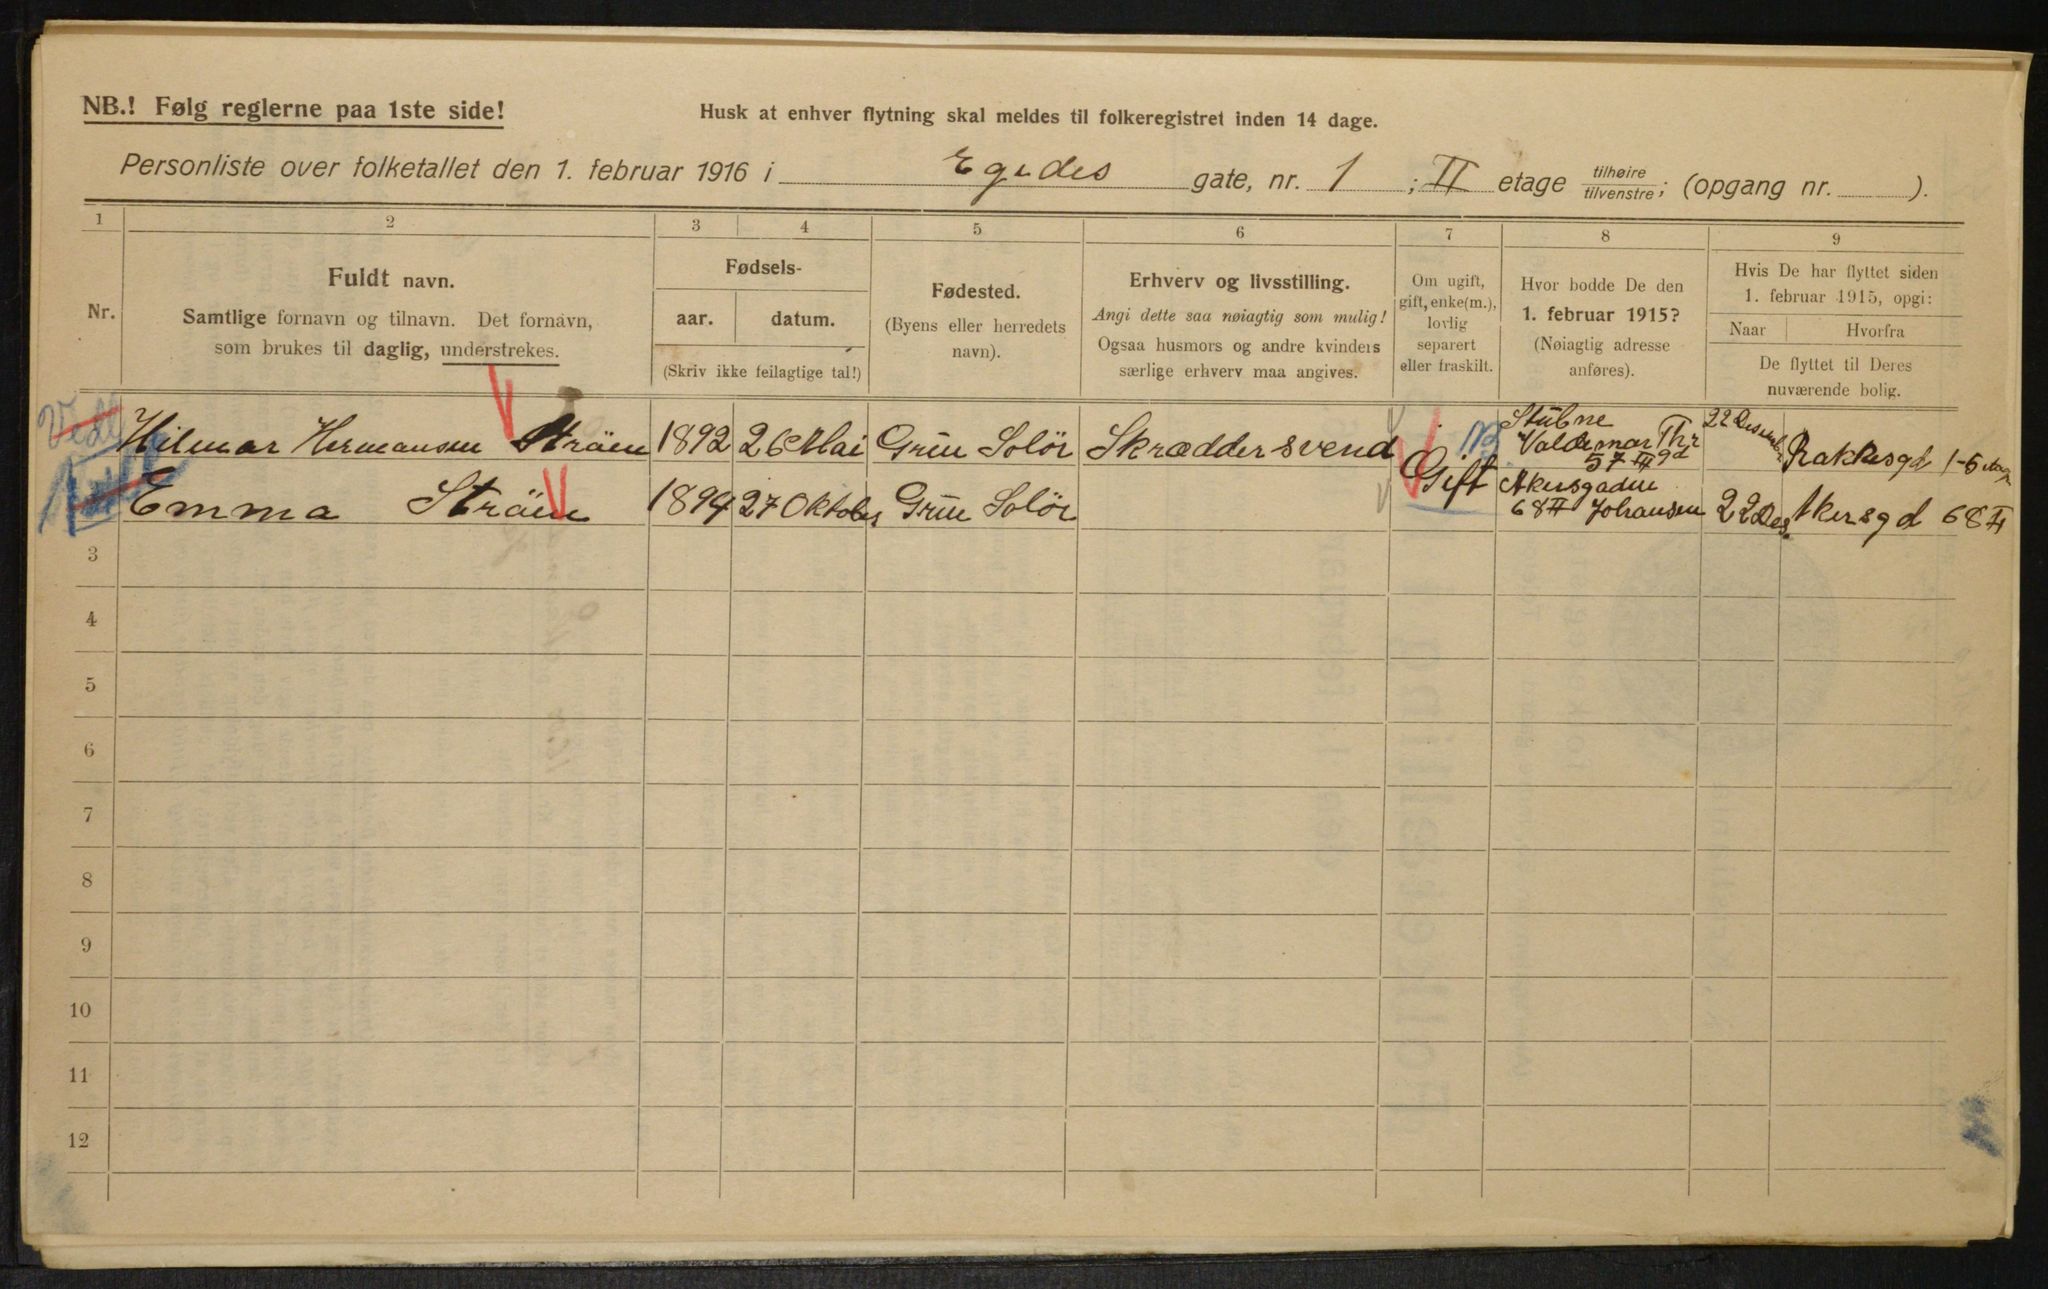 NB.! Følg reglerne paa 1ste side!
Husk at enhver flytning skal meldes til folkeregistret inden 14 dage.
Personliste over folketallet den 1. februar 1916 i Egedes gate, nr. 1 ; II etage tilhøire/tilvenstre; (opgang nr. ).
1 2 3 4 5 6 7 8 9
Nr.
Fuldt navn.
Samtlige fornavn og tilnavn. Det fornavn,
som brukes til daglig, understrekes.
Fødsels-
aar. datum.
(Skriv ikke feilagtige tal!)
Fødested.
(Byens eller herredets
navn).
Erhverv og livsstilling.
Angi dette saa nøiagtig som mulig!
Ogsaa husmors og andre kvinders
særlige erhverv maa angives.
Om ugift,
gift, enke(m.),
lovlig
separert
eller fraskilt.
Hvor bodde De den
1. februar 1915?
(Nøiagtig adresse
anføres).
Hvis De har flyttet siden
1. februar 1915, opgi:
Naar Hvorfra
De flyttet til Deres
nuværende bolig.
Hilmar Hermansen Ström 1892 26 Mai Grue Solör Skræddersvend Gift Stubne Valdemar Thr 57 III gd 22 Rakkesgd 1-5
Emma Ström 1894 27 Oktober Grue Solör Akersgaden 68 II Johansen 22 Des Akersgd 68 II
3
4
5
6
7
8
9
10
11
12